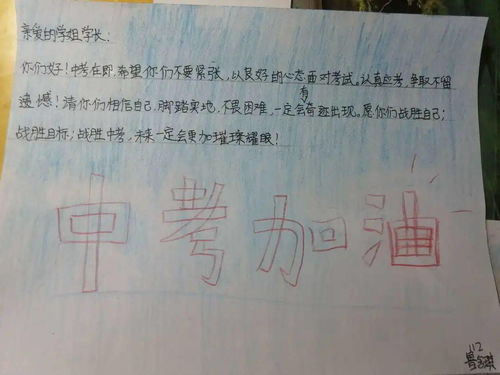 亲爱的学姐学长：
你们好！中考在即，希望你们不要紧张，以良好的心态面对考试。认真应考，争取不留
遗憾！请你们相信自己，脚踏实地，不畏困难，一定会有奇迹出现。愿你们战胜自己；
战胜目标；战胜中考，未来一定会更加璀璨耀眼！
中考加油
112